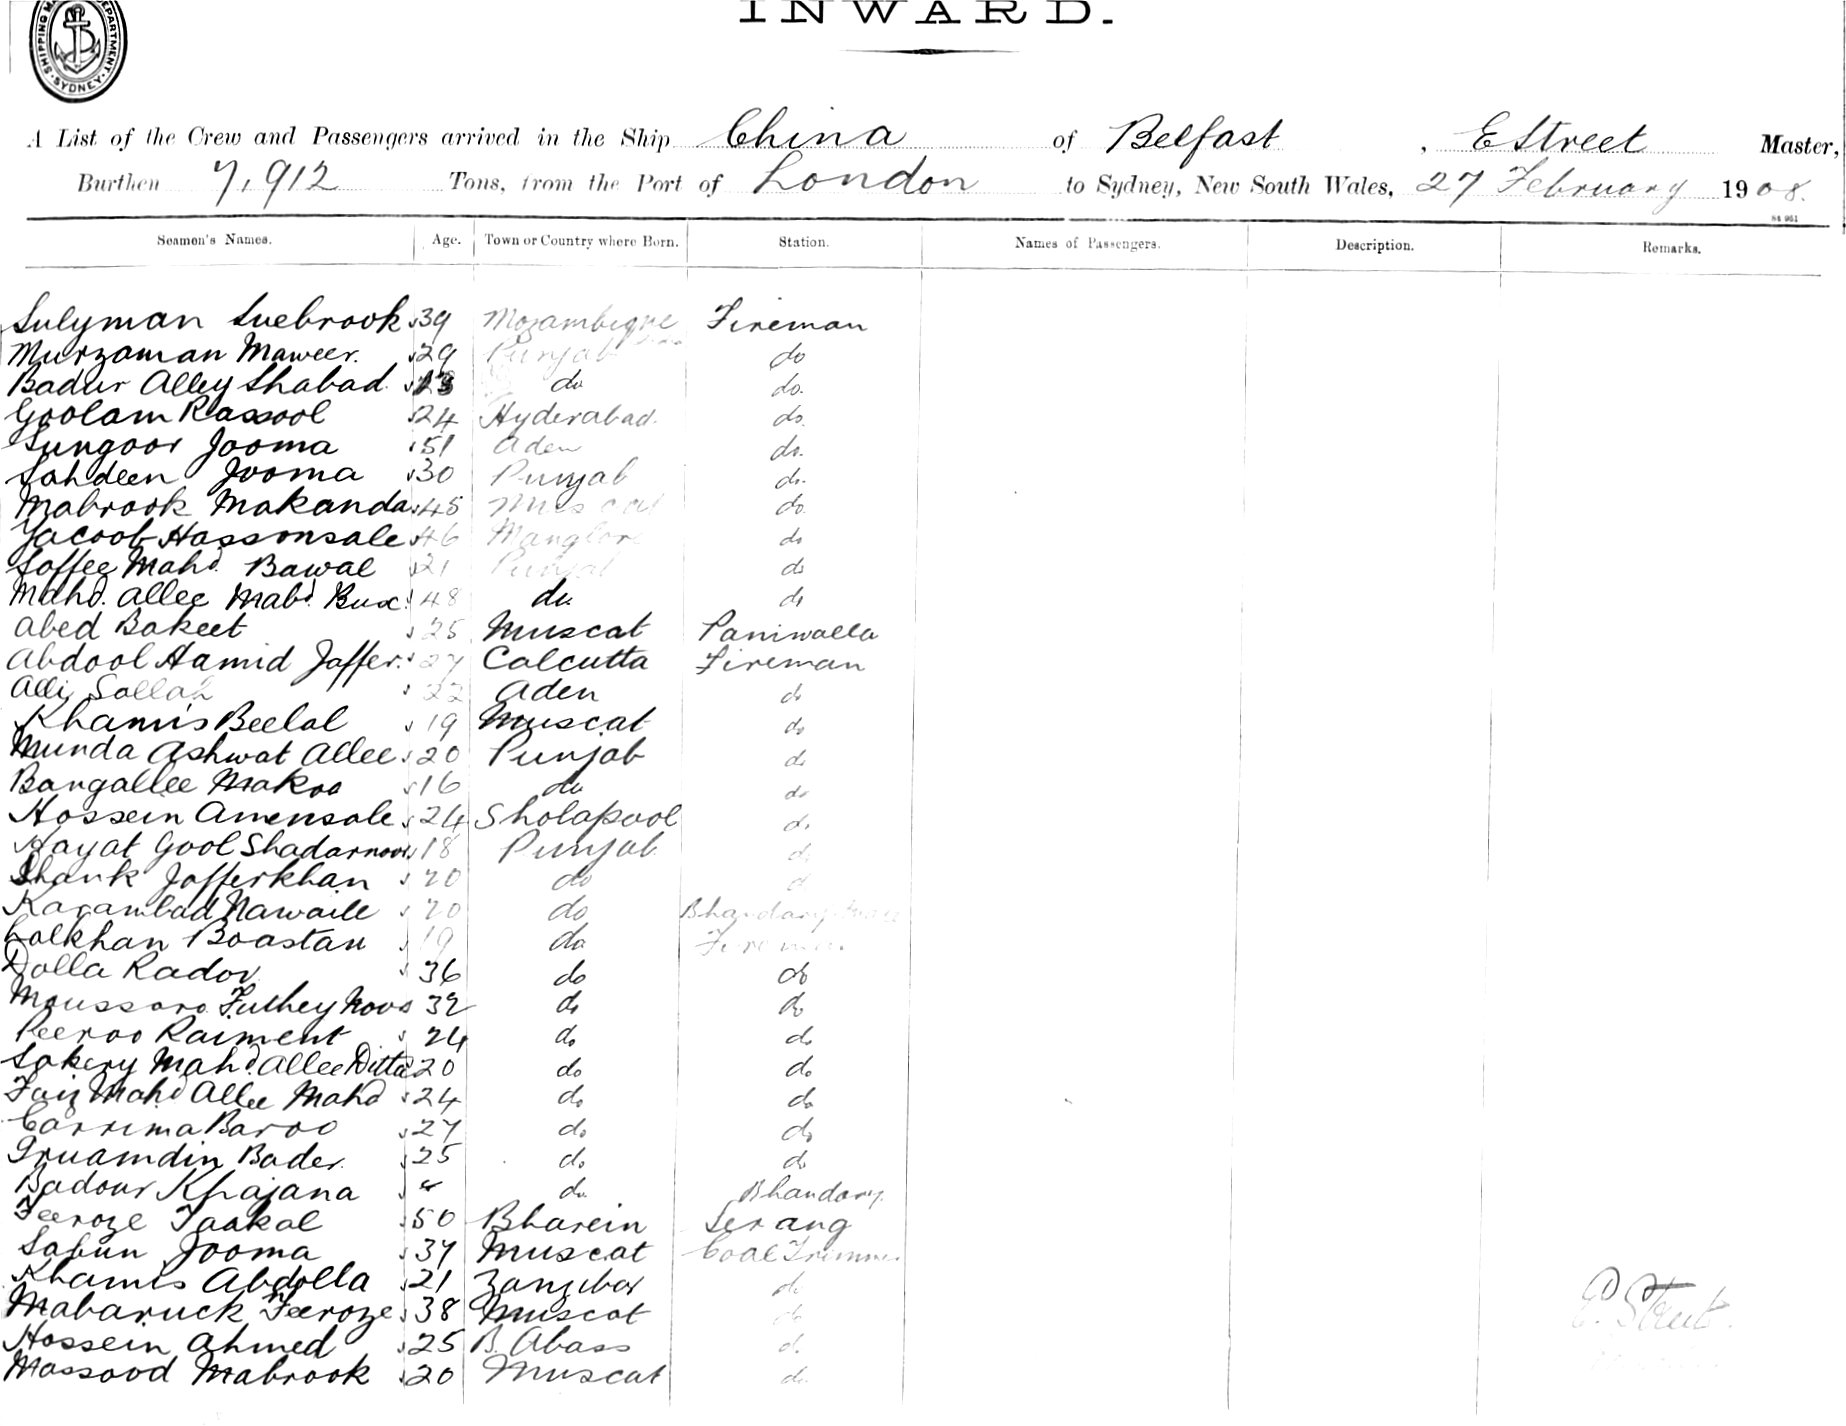 INWARD.
SHIPPING MA DEPARTMENT. SYDNEY
A List of the Crew and Passengers arrived in the Ship China of Belfast, E Street Master,
Burthen 7,912 Tons, from the Port of London to Sydney, New South Wales, 27 February 1908.
Seamen's Names. Age. Town or Country where Born. Station. Names of Passengers. Description. Remarks.
Sulyman Suebrook 39 Mozambique Fireman
Murzaman Maweer. 29 Punjab do
Badur Alley Shabad do do.
Goolam Rassool 24 Hyderabad. do.
Sungoor Jooma 51 Aden do.
Sahdeen Jooma 30 Punjab do.
Mabrook Makanda 45 Muscat do
Yacoob Hassonsale 46 Manglore do
Soffee Mahd. Bawal 21 Punjab do
Mahd. Allee Mahd. Bux. 48 do do
Abed Bakeet 25 Muscat Paniwalla
Abdool Hamid Jaffer. 27 Calcutta Fireman
Alli Sallah 22 Aden do
Khamis Beelal 19 Muscat do
Munda Ashwat Allee 20 Punjab do
Bangallee Makoo 16 do do
Hossein Amensale 24 Sholapool do
Hayat Gool Shadarnoor 18 Punjab do
Shank Jafferkhan 20 do d
Karambad Nawaile 20 do Bhandary
Lolkhan Boastan 19 do Fireman
Dolla Rador 36 do do
Moussara Futhey Noor 32 do do
Peeroo Raiment 24 do do
Sakery Mahd. Allee Ditta 20 do do
Faiz Mahd Allee Mahd 24 do do
Carrima Baroo 27 do do
Gruamdin Bader. 25 do do
Badour Khajana " do Bhandary.
Feeroze Taakal 50 Bharein Serang
Sabun Jooma 37 Muscat Coal Trimmer
Khamis Abdolla 21 Zanzibar do
Mabaruck Feeroze 38 Muscat do
Hossein Ahmed 25 B. Abass d.
Massood Mabrook 20 Muscat do.
E. Street.